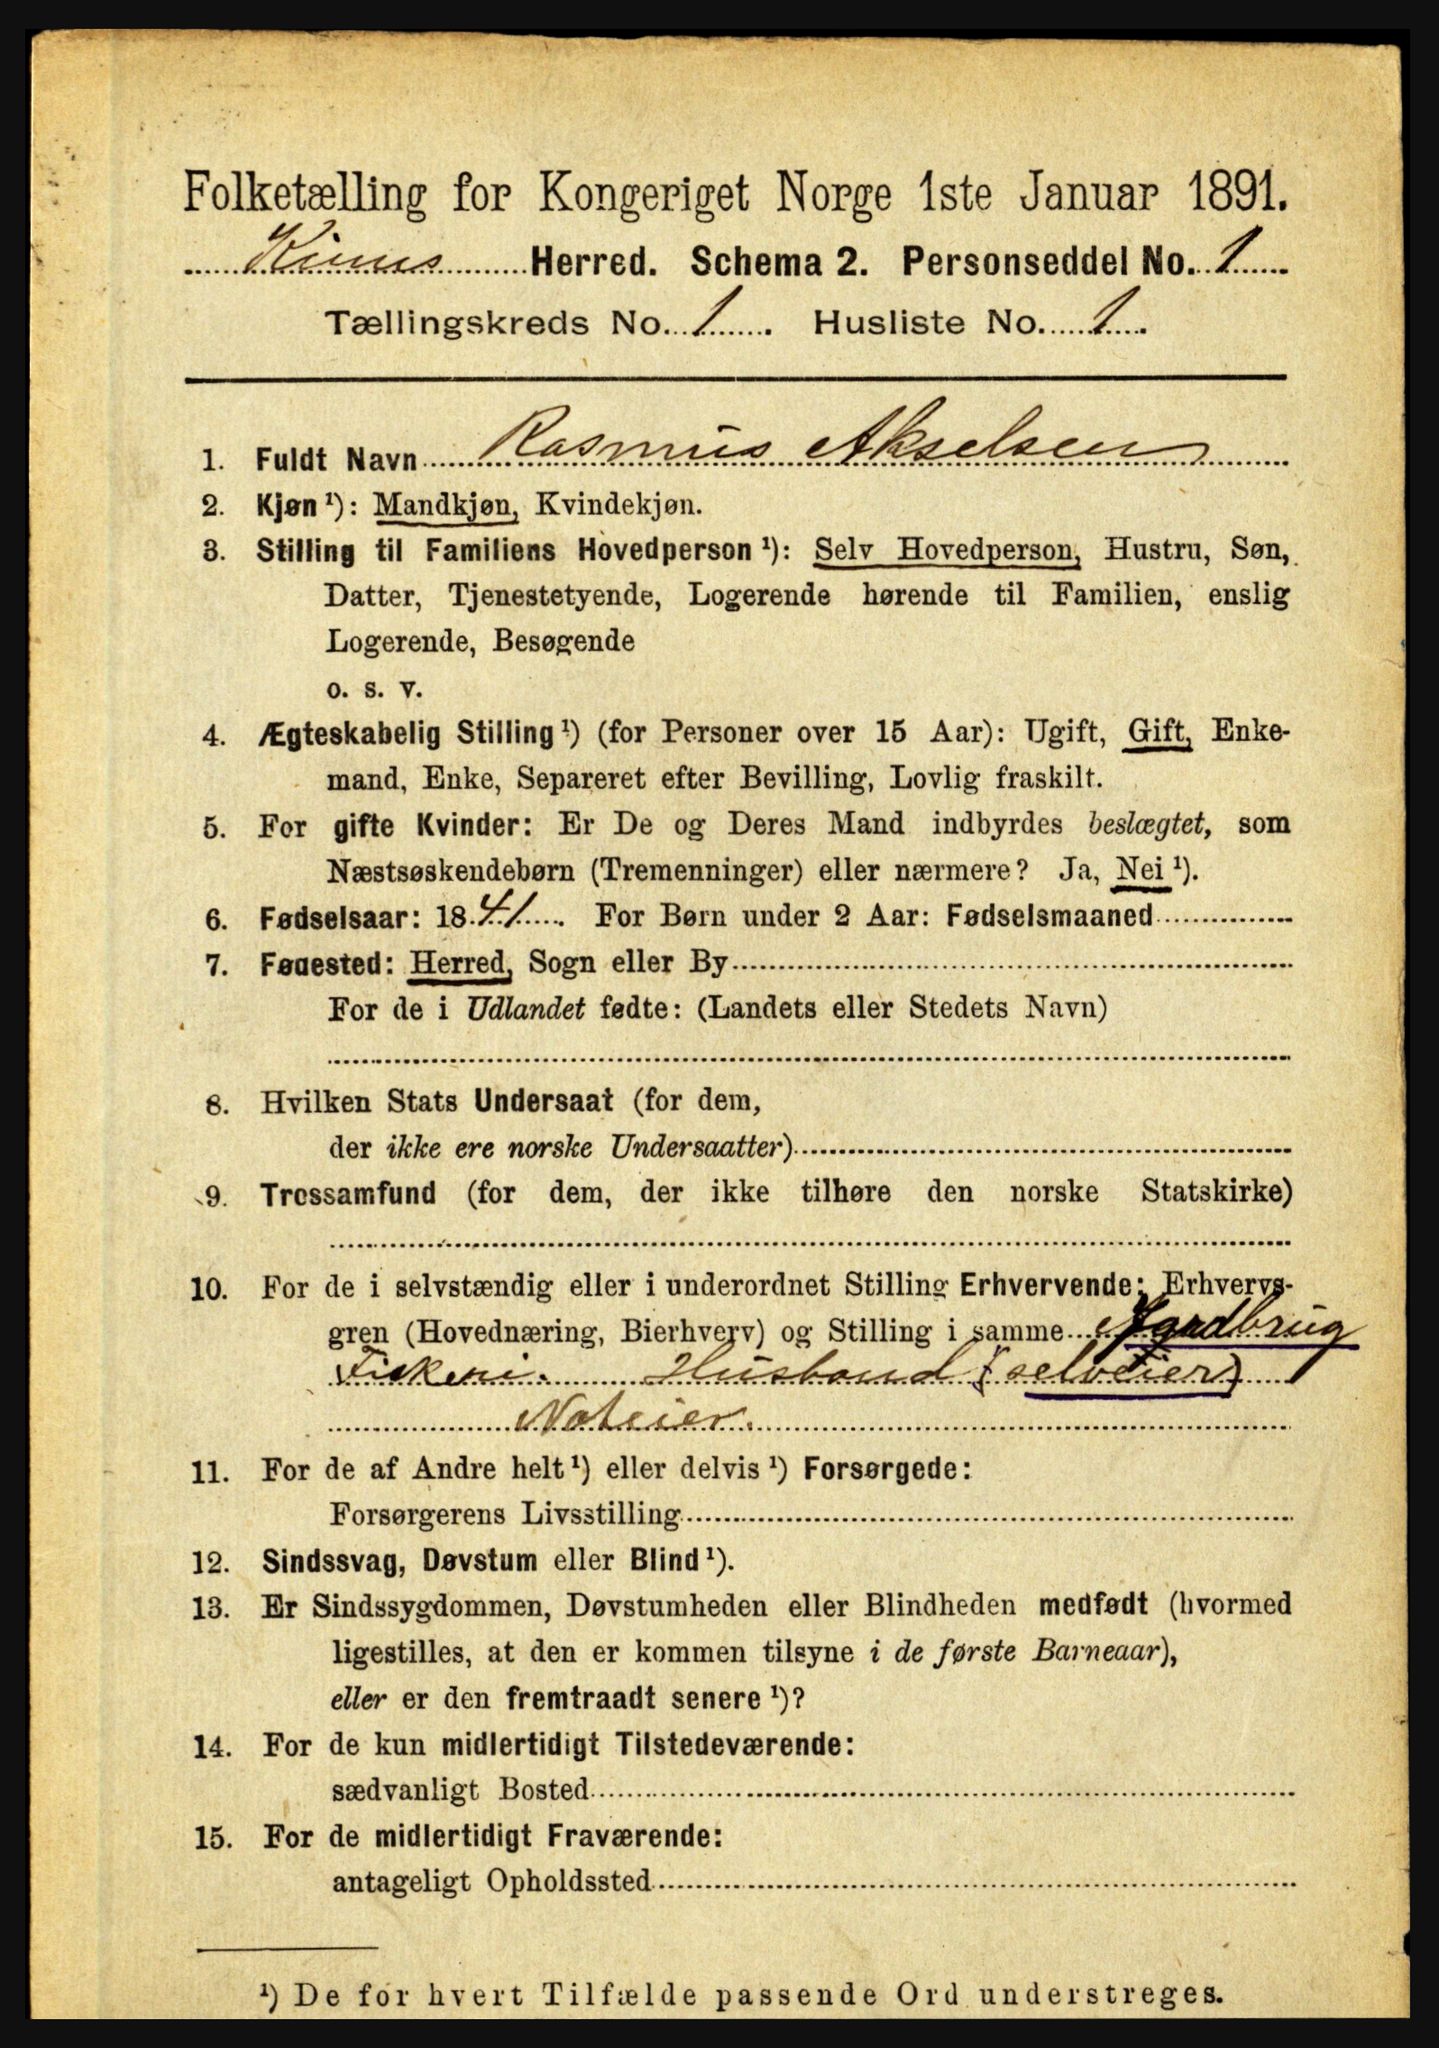 Folketælling for Kongeriget Norge 1ste Januar 1891.
Kinns Herred. Schema 2. Personseddel No. 1
Tællingskreds No. 1. Husliste No. 1.
1. Fuldt Navn Rasmus Akselsen
2. Kjøn ¹): Mandkjøn, Kvindekjøn.
3. Stilling til Familiens Hovedperson ¹): Selv Hovedperson, Hustru, Søn,
Datter, Tjenestetyende, Logerende hørende til Familien, enslig
Logerende, Besøgende
o. s. v.
4. Ægteskabelig Stilling ¹) (for Personer over 15 Aar): Ugift, Gift, Enke-
mand, Enke, Separeret efter Bevilling, Lovlig fraskilt.
5. For gifte Kvinder: Er De og Deres Mand indbyrdes beslægtet, som
Næstsøskendebørn (Tremenninger) eller nærmere? Ja, Nei ¹).
6. Fødselsaar: 1841. For Børn under 2 Aar: Fødselsmaaned
7. Fødested: Herred, Sogn eller By
For de i Udlandet fødte: (Landets eller Stedets Navn)
8. Hvilken Stats Undersaat (for dem,
der ikke ere norske Undersaatter)
9. Trossamfund (for dem, der ikke tilhøre den norske Statskirke)
10. For de i selvstændig eller i underordnet Stilling Erhvervende: Erhvervs-
gren (Hovednæring, Bierhverv) og Stilling i samme Jordbrug
Fiskeri. Husbond (selveier)
Noteier.
11. For de af Andre helt ¹) eller delvis ¹) Forsørgede:
Forsørgerens Livsstilling
12. Sindssvag, Døvstum eller Blind ¹).
13. Er Sindssygdommen, Døvstumheden eller Blindheden medfødt (hvormed
ligestilles, at den er kommen tilsyne i de første Barneaar),
eller er den fremtraadt senere ¹)?
14. For de kun midlertidigt Tilstedeværende:
sædvanligt Bosted
15. For de midlertidigt Fraværende:
antageligt Opholdssted
¹) De for hvert Tilfælde passende Ord understreges.